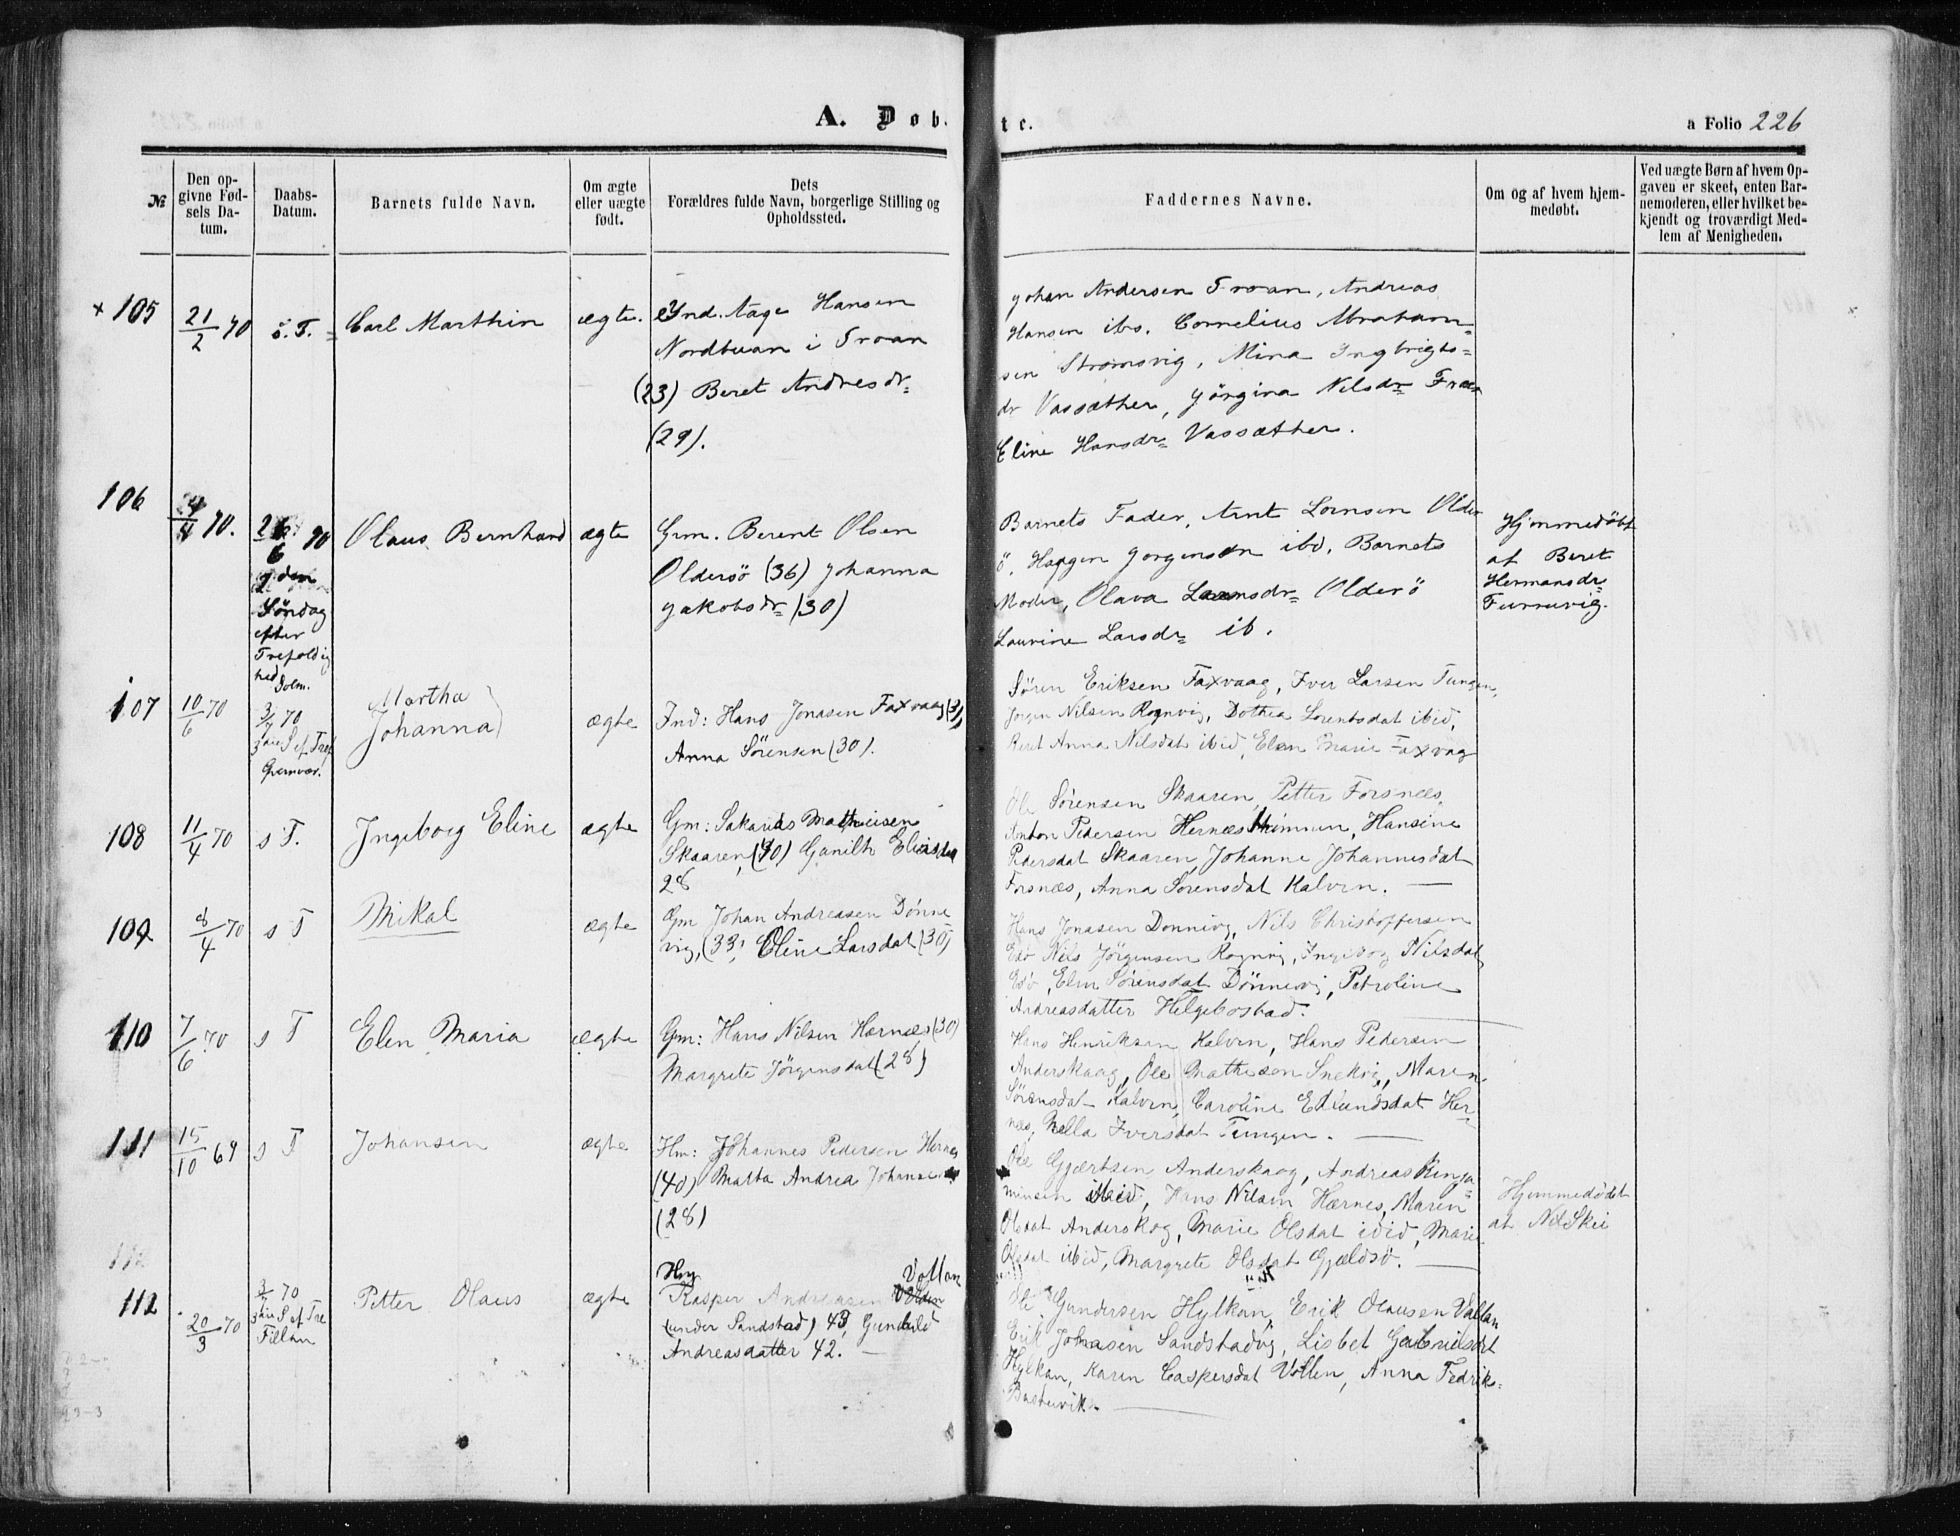 A. Døb-
te.
a Folio 226
№
Den op-
givne Fød-
sels Da-
tum.
Daabs-
Datum.
Barnets fulde Navn.
Om ægte
eller uægte
født.
Dets
Forældres fulde Navn, borgerlige Stilling og
Opholdssted.
Faddernes Navne.
Om og af hvem hjem-
medøbt.
Ved uægte Børn af hvem Op-
gaven er skeet, enten Bar-
nemoderen, eller hvilket be-
kjendt og troværdigt Med-
lem af Menigheden.
+ 105
21/2 70
s. T.
Carl Marthin
ægte.
Ind. Aage Hansen
Nordbuan i Froan
(23) Beret Andresdr
(29).
Johan Andersen Froan, Andreas
Hansen ibd. Cornelius Abraham-
sen Strømsvig, Mina Ingbrigts-
dr Vassæther, Jørgina Nilsdr
Eline Hansdr Vassæther.
106
4/4 70.
26/6 70
2den
Søndag
efter
Trefoldig
hed
Dolm.
Olaus Bernhard
ægte
Gm. Berent Olsen
Oldersø (36) Johanna
Jakobsdr (30)
Barnets Fader, Arnt Lornsen Older
ø, Haagen Jorgensen ibd, Barnets
Moder, Olava Larnsdr Olderö
Laurine Larsdr ib.
Hjemmedöbt
af Beret
Hermansdr
Furruvig.
107
10/6 70
3/7 70
3die S ef. Tref
Qvenvær.
Martha
Johanna
ægte
Ind: Hans Jonasen Faxvaag
Anna Sørensen (30).
Søren Eriksen Faxvaag, Iver Larsen Tungen,
Jorgen Nilsen Rognvig, Dothea Lorentsdat ibid,
Beret Anna Nilsdat ibid, Elen Marie Faxvag
108
11/4 70
s T.
Ingeborg Eline
ægte
Gm: Sakarias Matheisen
Skaaren, (40) Gunilh
28
Ole Sørensen Skaaren, Petter Forsnæs,
Anton Pedersen Hernæs, Hansine
Pedersdat Skaaren, Johanne Johannesdat
Forsnæs, Anna Sørensdat Kalven.
109
8/4 70
s T
Mikal
ægte
Gm Johan Andreasen Dönne
vig, (33, Eline Larsdat (30)
Hans Jonasen Donnvig, Nils Christoffersen
Edø Nils Jørgensen Rognvig, Ingeborg Nilsdat
Edø, Elen Sørensdat Dönnevig, Petroline
Andreasdatter Helgebostad.
110
7/6 70
s T
Elen Maria
ægte
Gm: Hans Nilsen Hærnæs (30)
Margrete Jörgensdat (28)
Hans Henriksen Kalven, Hans Pedersen
Anderskaag, Ole Mathesen Snekvi, Maren
Sørensdat Kalven, Caroline Edlundsdat Her-
næs, Mella Iversdat Tungen.
111
15/10 69
s T
Johansen
ægte
Hm: Johannes Pedersen Hernes
(40) Marta Andrea Johansen
(28)
Ole Gjærtsen Anderskaag, Andreas Benja-
minsen ibid, Hans Nilsen Hærnes, Maren
Olsdat Anderskog, Marie Olsdat ibid, Mari
Olsdat ibid, Margrete Olsdat Gjældsø.
Hjemmedøbt
at Nil Skei
112
112
20/3 70
3/7 70
3die S ef. Tre
Fillan
Petter Olaus
ægte
Kasper Andreasen Vollan
(under Sandstad) 43, Gunhild
Andreasdatter 42.
Ole Gundersen Hylkan, Erik Olausen Vallan
Erik Johnsen Sandstadvig, Lisbet Gabrielsdat
Hylkan, Karen Caspersdat Vollen, Anna Fedrik-